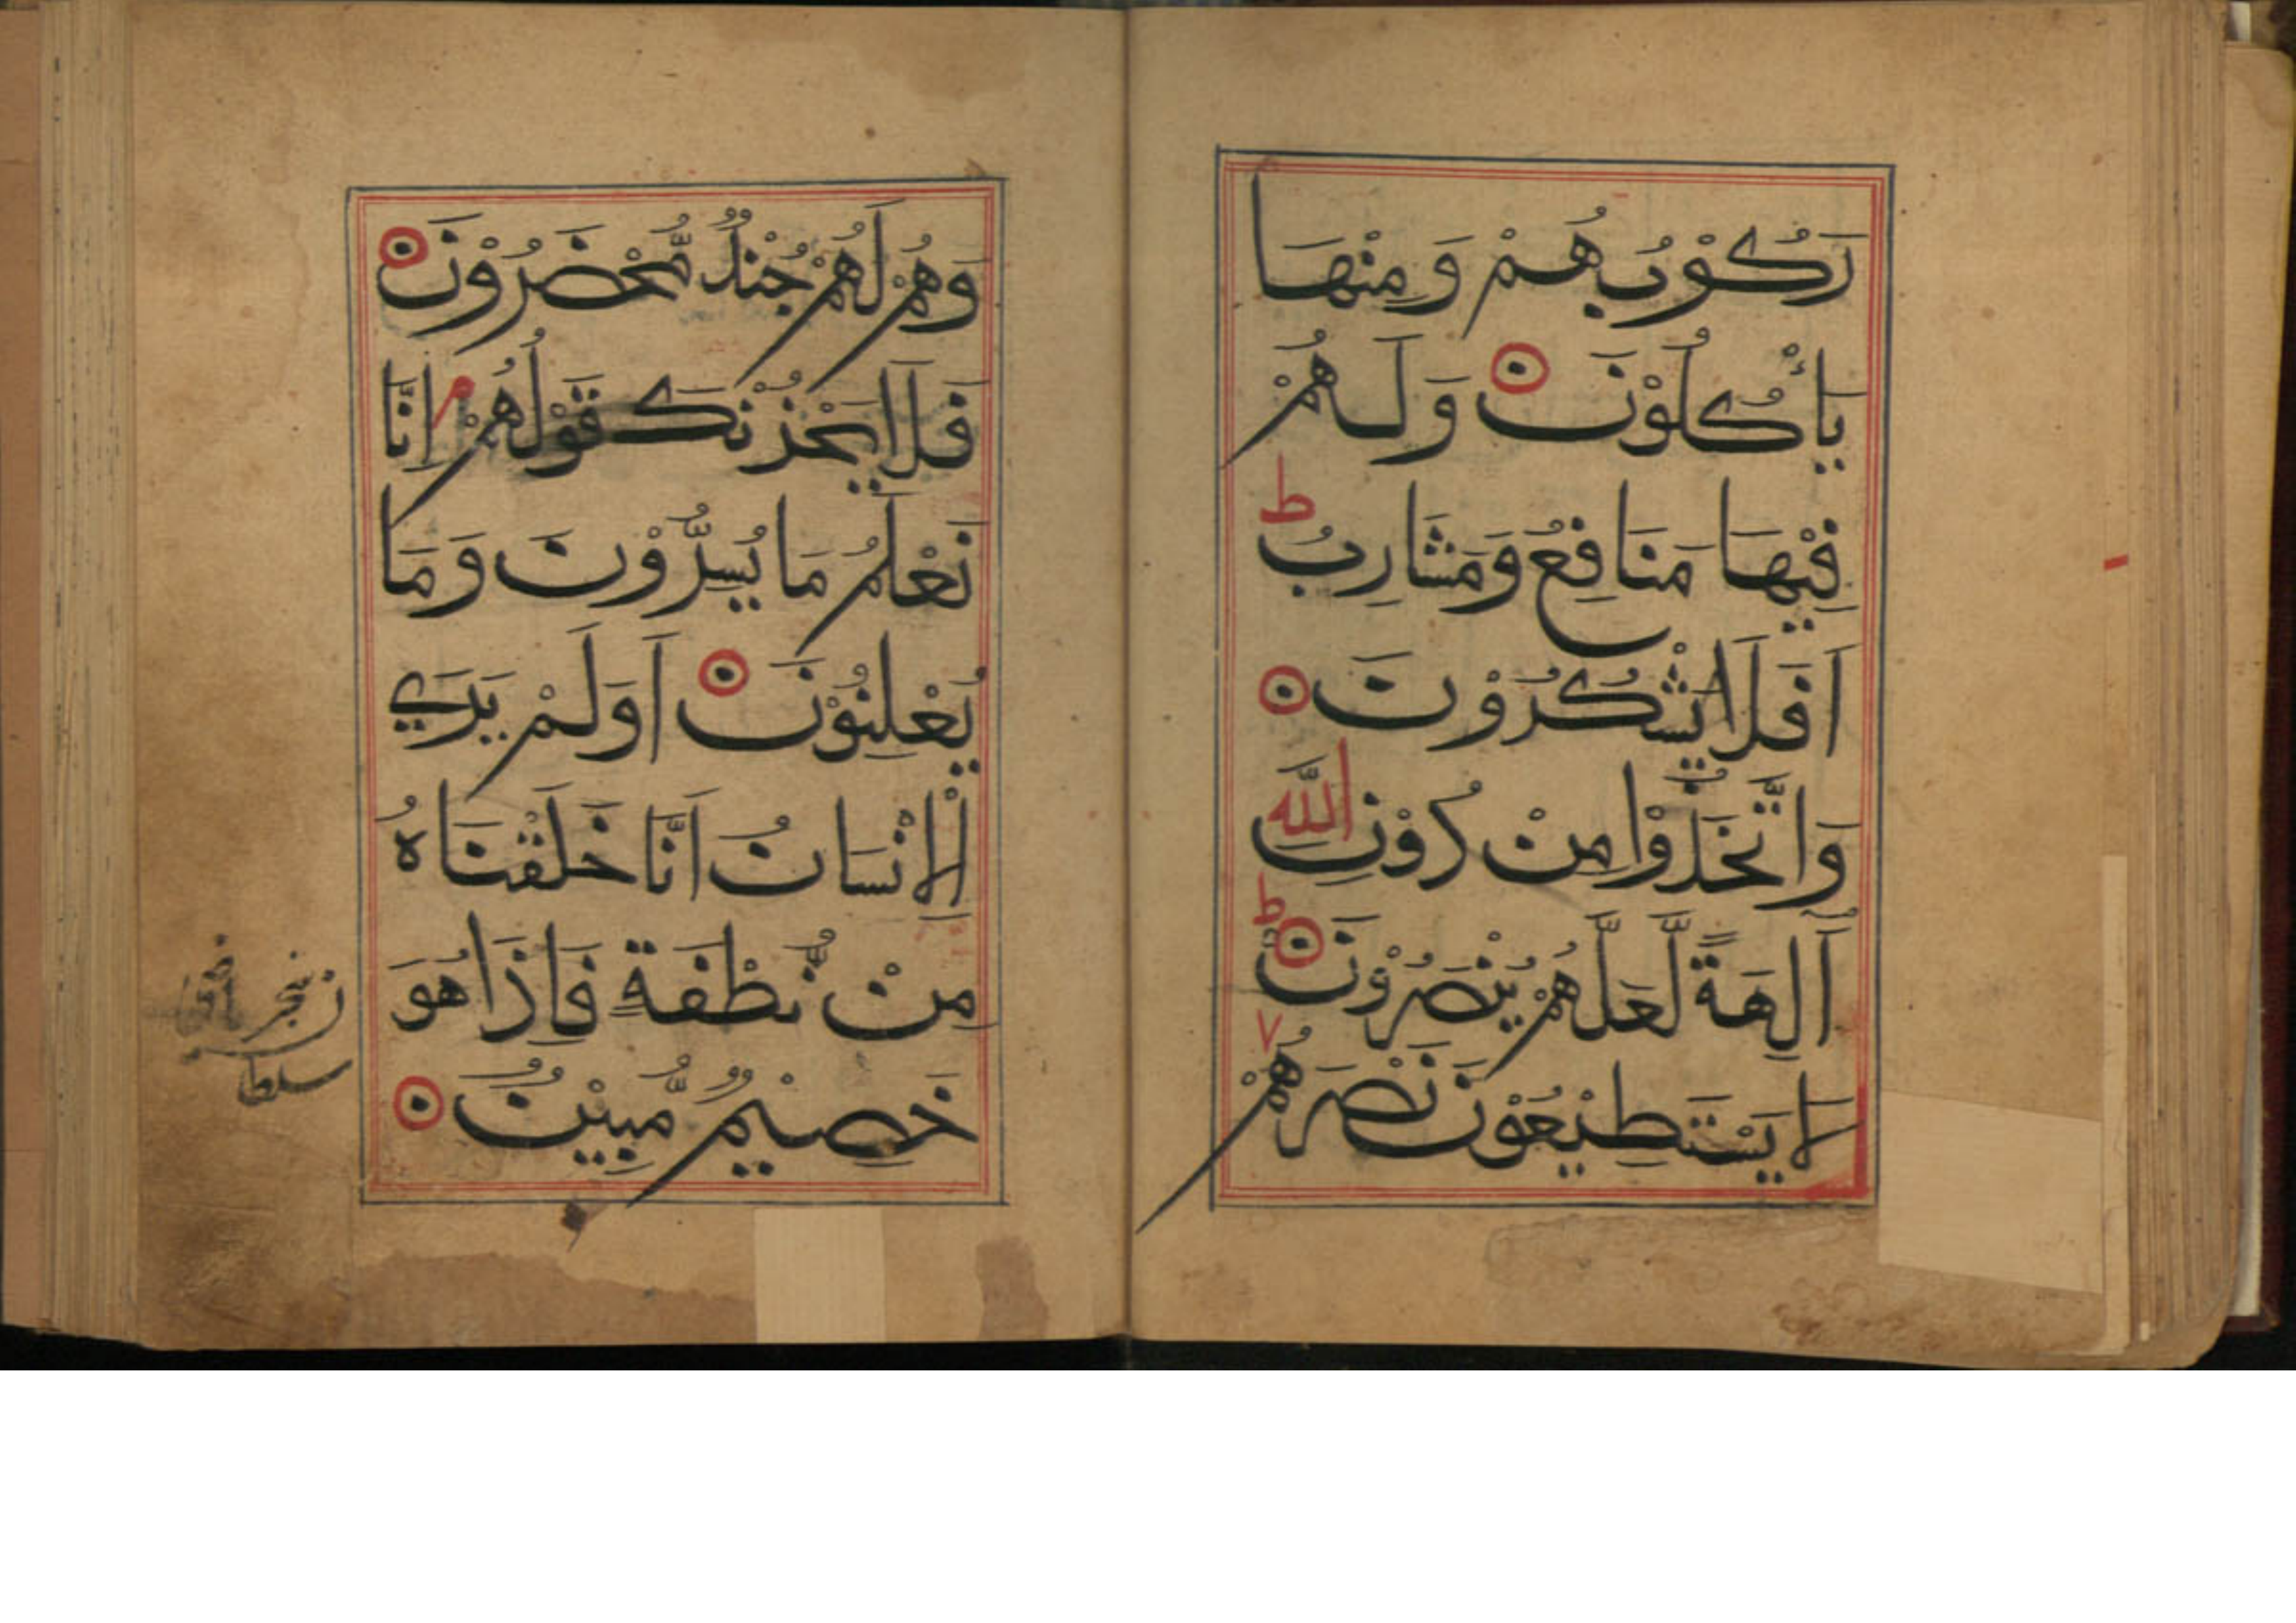 رَكُوْبُهُمْ وَمِنْهَا
يَأْكُلُوْنَ وَلَهُمْ
فِيْهَا مَنَافِعُ وَمَشَارِبُ ط
اَفَلَا يَشْكُرُوْنَ
وَاتَّخَذُوْا مِنْ دُوْنِ اللَّهِ
آلِهَةً لَّعَلَّهُمْ يُنْصَرُوْنَ ط
لَا يَسْتَطِيْعُوْنَ نَصْرَهُمْ
وَهُمْ لَهُمْ جُنْدٌ مُّحْضَرُوْنَ
فَلَا يَحْزُنْكَ قَوْلُهُمْ م اِنَّا
نَعْلَمُ مَا يُسِرُّوْنَ وَمَا
يُعْلِنُوْنَ اَوَلَمْ يَرَي
الْاِنْسَانُ اَنَّا خَلَقْنَاهُ
مِنْ نُّطْفَةٍ فَاِذَا هُوَ
خَصِيْمٌ مُّبِيْنٌ